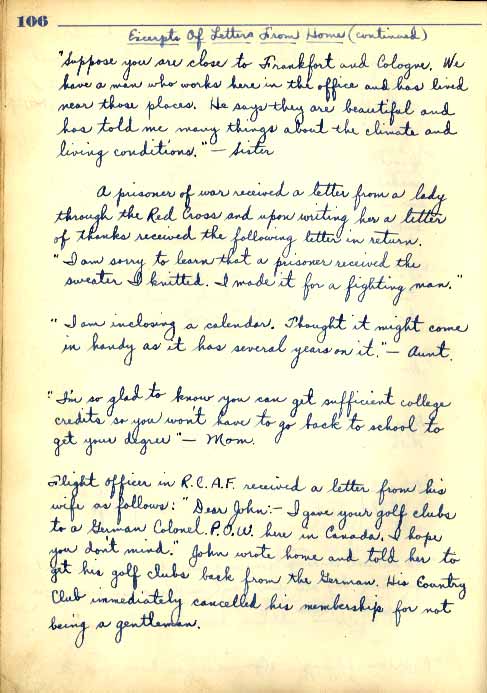 106
Excerpts Of Letters From Home (continued)
"Suppose you are close to Frankfort and Cologne. We
have a man who works here in the office and has lived
near those places. He says they are beautiful and
has told me many things about the climate and
living conditions." - Sister
A prisoner of war received a letter from a lady
through the Red Cross and upon writing her a letter
of thanks received the following letter in return.
"I am sorry to learn that a prisoner received the
sweater I knitted. I made it for a fighting man."
"I am inclosing a calendar. Thought it might come
in handy as it has several years on it." - Aunt.
"I'm so glad to know you can get sufficient college
credits so you won't have to go back to school to
get your degree" - Mom.
Flight officer in R.C.A.F. received a letter from his
wife as follows: "Dear John:- I gave your golf clubs
to a German Colonel P.O.W. here in Canada. I hope
you don't mind." John wrote home and told her to
get his golf clubs back from the German. His Country
Club immediately cancelled his membership for not
being a gentleman.